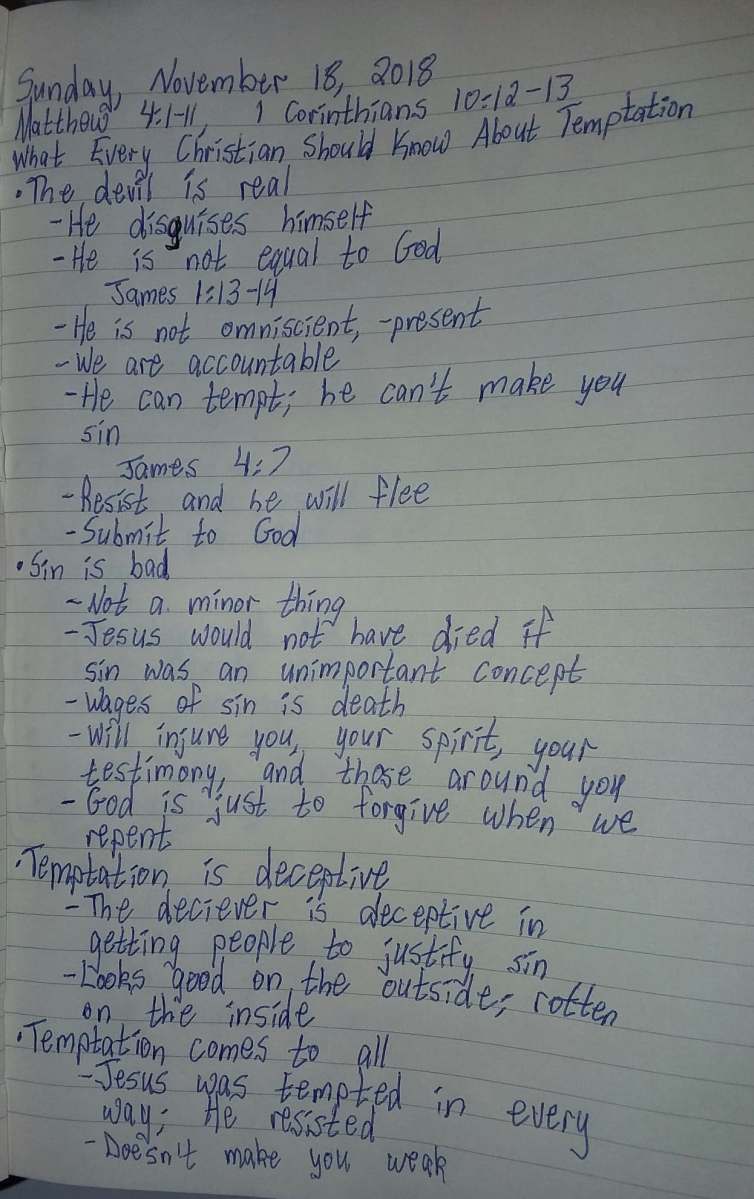 Sunday, November 18, 2018
Matthew 4:1-11, 1 Corinthians 10:12-13
What Every Christian Should Know About Temptation
• The devil is real
- He disguises himself
- He is not equal to God
James 1:13-14
- He is not omniscient, -present
- We are accountable
- He can tempt; he can't make you
sin
James 4:7
- Resist and he will flee
- Submit to God
• Sin is bad
- Not a minor thing
- Jesus would not have died if
sin was an unimportant concept
- Wages of sin is death
- Will injure you, your spirit, your
testimony, and those around you
- God is just to forgive when we
repent
• Temptation is deceptive
- The deciever is deceptive in
getting people to justify sin
- Looks good on the outside; rotten
on the inside
• Temptation comes to all
- Jesus was tempted in every
way; He resisted
- Doesn't make you weak